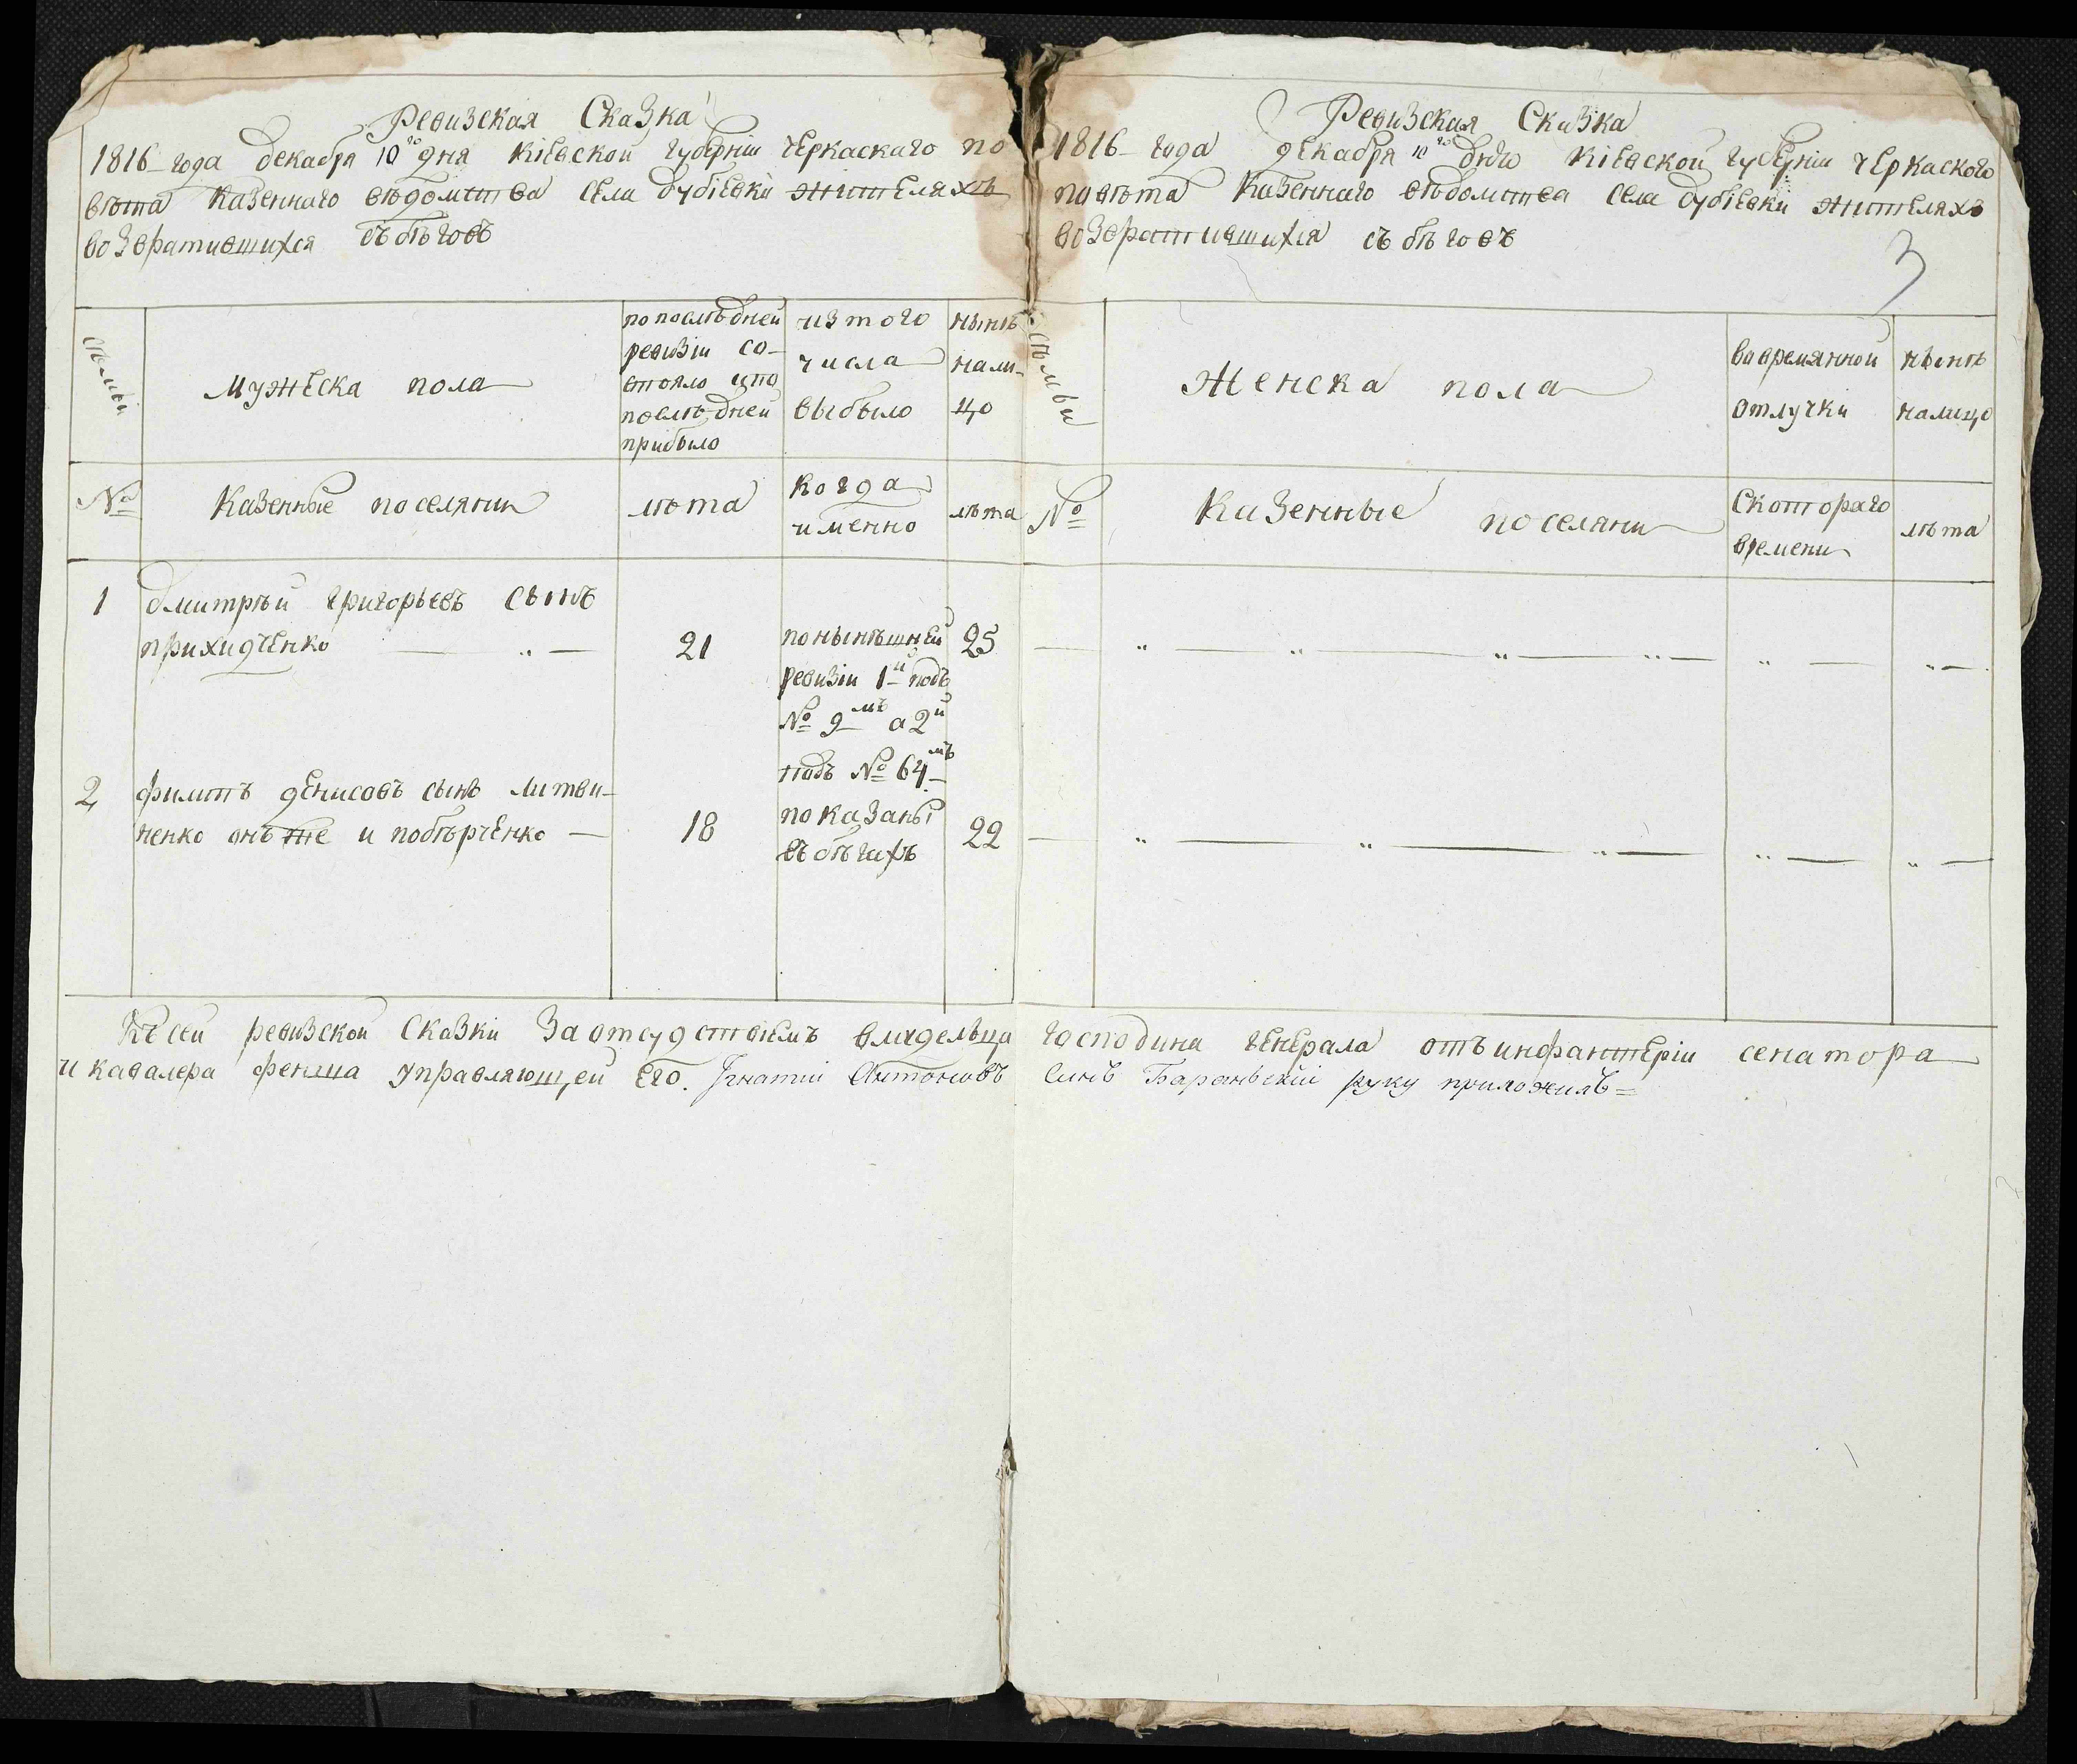 Ревизская Сказка
1816 года декабря 10го дня Кіевской губерніи черкаскаго по
вѣта Казеннаго вѣдомства села дубіевки жителяхъ
возвратившихся съ бѣговъ
семьи
мужеска пола
по послѣдней
ревизіи со-
стояло и по
послѣдней
прибыло
из того
числа
выбыло
нынѣ
нали-
цо
№
Казенные поселяни
лѣта
когда
именно
лѣта
1
дмитрѣй григорьевъ сынъ
прихидченко
21
по нынѣшней
ревизіи 1й подъ
№ 9мъ а 2й
подъ № 64мъ
показаны
въ бѣгахъ
25
2
филипъ денисовъ сынъ литви-
ненко онъ же и побѣрченко
18
22
Ревизская Сказка
1816 года декабря 10го дня Кіевской губерніи черкаского
повѣта Казеннаго вѣдомства села дубіевки жителяхъ
возвратившихся съ бѣговъ
3
семьи
Женска пола
во временной
отлучки
нынѣ
налицо
№
Казенные поселяни
С котораго
времени
лѣта
Къ сей ревизской Сказки За отсудствіемъ владельца господина генерала отъ инфантеріи сенатора
и кавалера фенша управляющей Его. Ігнатій Антоновъ Синъ Бараньскій руку приложилъ